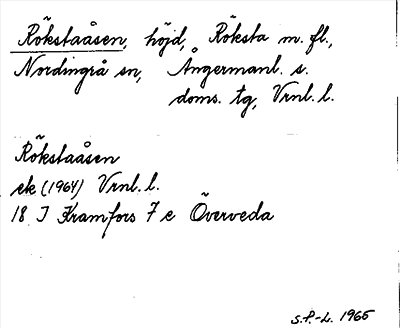 Rökstaåsen, höjd, Röksta m. fl.,
Nordingrå sn, Ångermanl. s.
doms. tg, Vrnl. l.
Rökstaåsen
ek (1964) Vrnl. l.
18 J Kramfors 7 e Överveda
S.P.-L. 1965